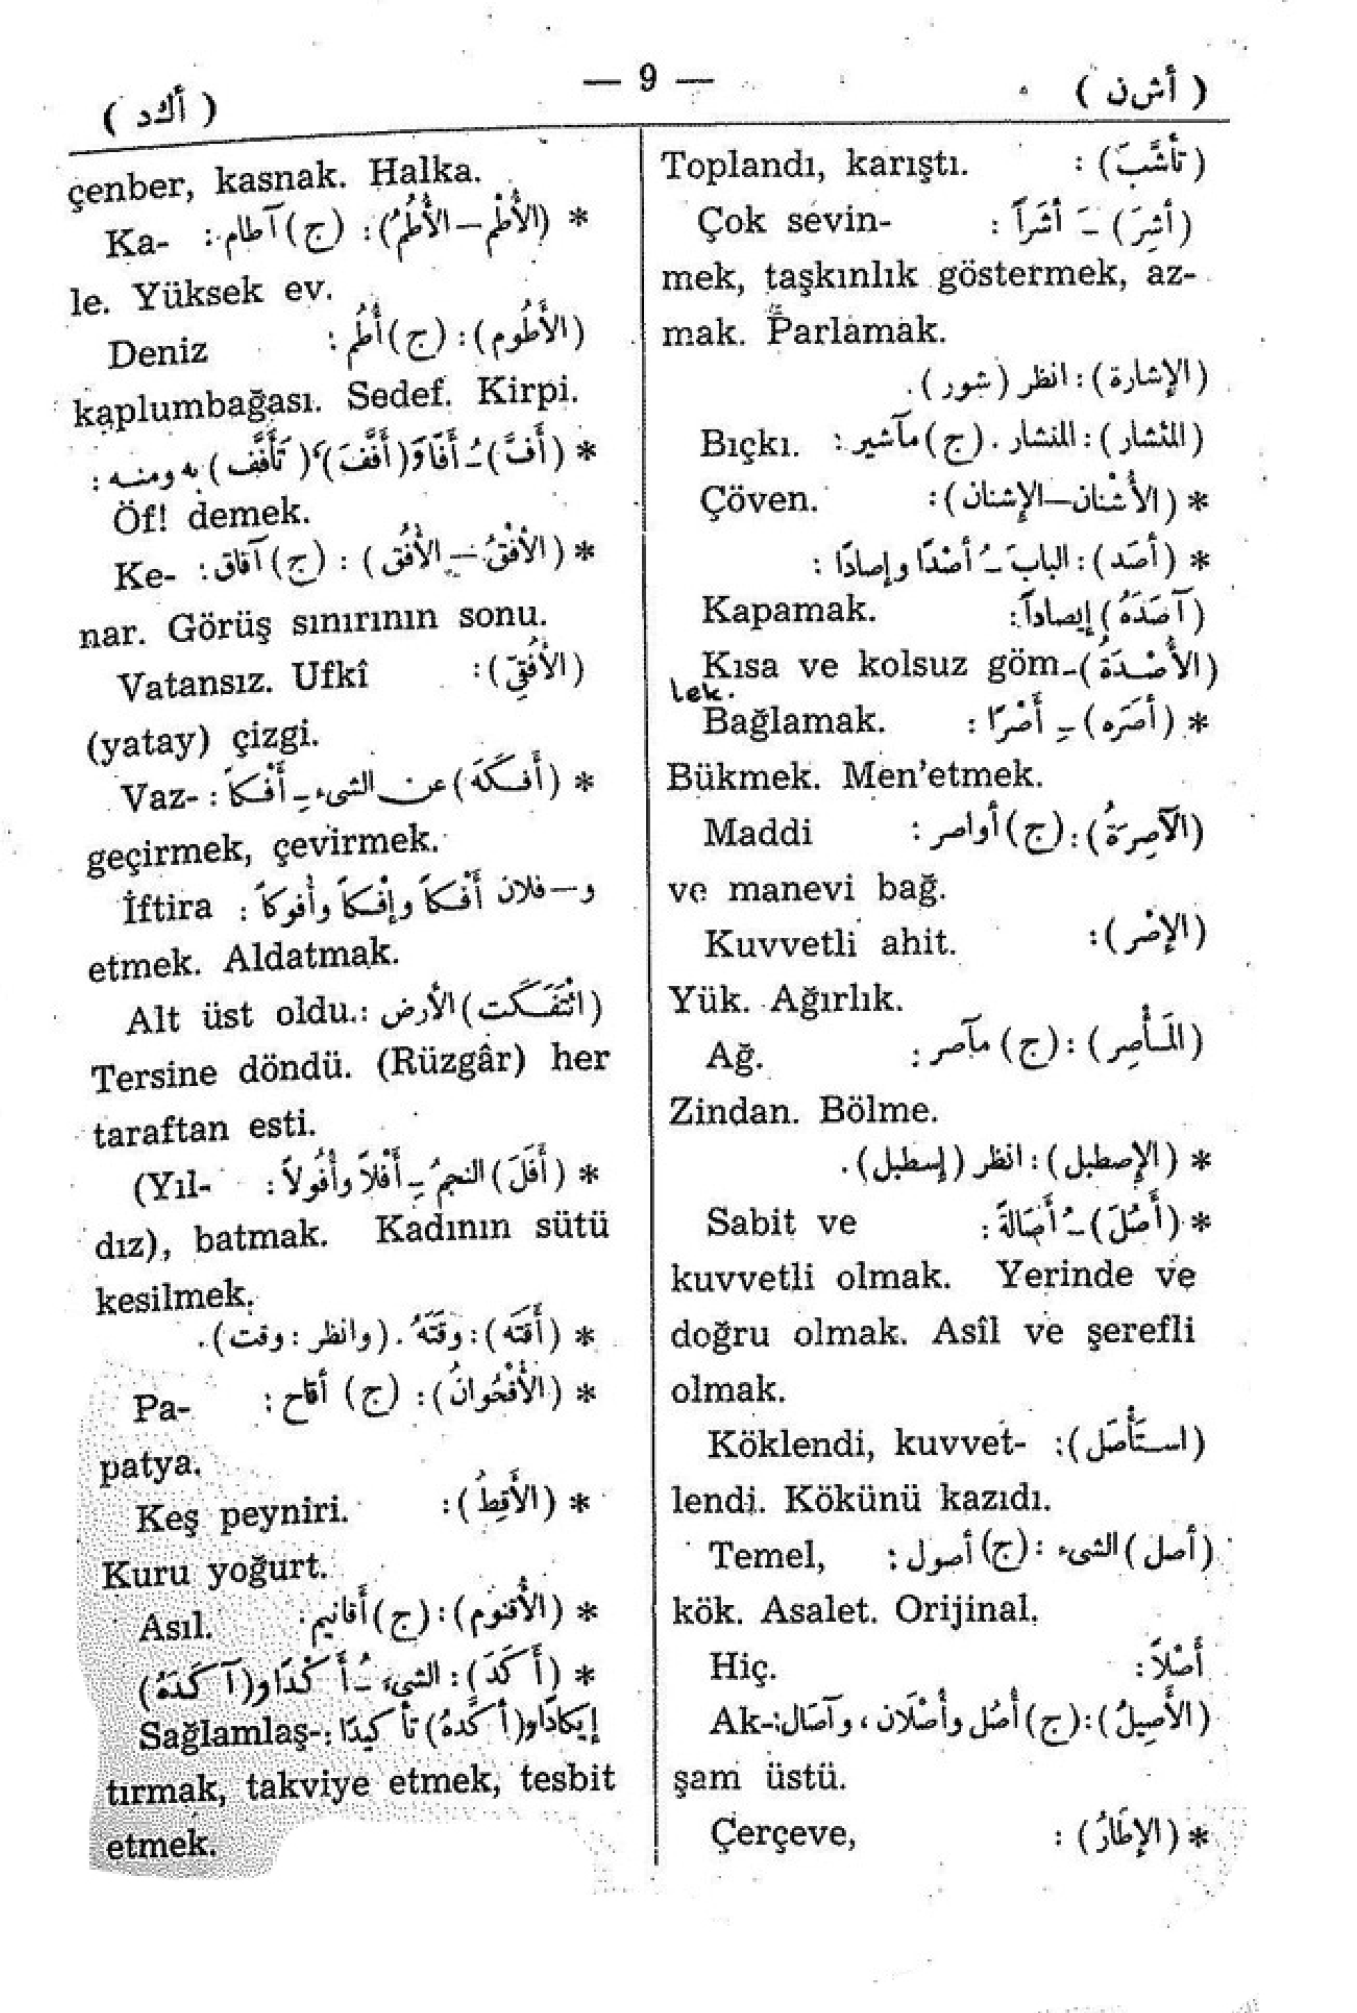 ( أشن ) — 9 — ( أكد )
(تأشَّبَ) : Toplandı, karıştı.
(أشِرَ) ـَ أشَراً : Çok sevin-
mek, taşkınlık göstermek, az-
mak. Parlamak.
(الإشارة) : انظر (شور) .
(المئشار) : المنشار . (ج) مآشير : Bıçkı.
* (الأُشْنان—الإشنان) : Çöven.
* (أصَد) : البابَ ـُ أصْدًا وإصادًا :
(آصَدَهُ) إيصاداً : Kapamak.
(الأُصْدَةُ) Kısa ve kolsuz göm-
lek.
* (أصَره) ـِ أَصْرًا : Bağlamak.
Bükmek. Men'etmek.
(الآصِرَةُ) : (ج) أواصر : Maddi
ve manevi bağ.
(الإصْر) : Kuvvetli ahit.
Yük. Ağırlık.
(المَأْصِر) : (ج) مآصر : Ağ.
Zindan. Bölme.
* (الإصطبل) : انظر (إسطبل) .
* (أصُلَ) ـُ أَصَالةً : Sabit ve
kuvvetli olmak. Yerinde ve
doğru olmak. Asîl ve şerefli
olmak.
(استأْصَل) : Köklendi, kuvvet-
lendi. Kökünü kazıdı.
(أصل) الشىء : (ج) أصول : Temel,
kök. Asalet. Orijinal.
أَصْلاً : Hiç.
(الأَصِيلُ) : (ج) أُصُل وأُصْلان ، وآصَال : Ak-
şam üstü.
* (الإطَارُ) : Çerçeve,
çenber, kasnak. Halka.
* (الأُطْم—الأُطُمُ) : (ج) آطام : Ka-
le. Yüksek ev.
(الأَطُوم) : (ج) أُطُم : Deniz
kaplumbağası. Sedef. Kirpi.
* (أفَّ) ـُ أَفًّا وَ(أَفَّفَ)، (تَأَفَّف) به ومنـه :
Öf! demek.
* (الأُفْقُ — الأُفُق) : (ج) آفاق : Ke-
nar. Görüş sınırının sonu.
(الأُفُقِيّ) : Vatansız. Ufkî
(yatay) çizgi.
* (أَفَكَهُ) عن الشىء ـِ أَفْكاً : Vaz-
geçirmek, çevirmek.
و — فلان أَفْكاً وإفْكاً وأُفوكاً : İftira
etmek. Aldatmak.
(ائْتَفَكَت) الأرض : Alt üst oldu.
Tersine döndü. (Rüzgâr) her
taraftan esti.
* (أَفَلَ) النجمُ ـِ أَفْلاً وأُفُولاً : (Yıl-
dız), batmak. Kadının sütü
kesilmek.
* (أَقَتَه) : وقَتَهُ . (وانظر : وقت) .
* (الأُقْحُوانُ) : (ج) أقاح : Pa-
patya.
* (الأَقِطُ) : Keş peyniri.
Kuru yoğurt.
* (الأُقنوم) : (ج) أقانيم : Asıl.
* (أَكَدَ) : الشىء ـُ أَكْدًا و(آكَدَهُ)
إيكادًا و(أكَّدهُ) تأكيدًا : Sağlamlaş-
tırmak, takviye etmek, tesbit
etmek.